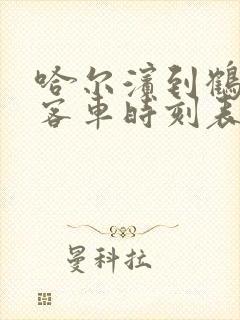 哈尔滨到鹤
客车时刻表
曼科拉